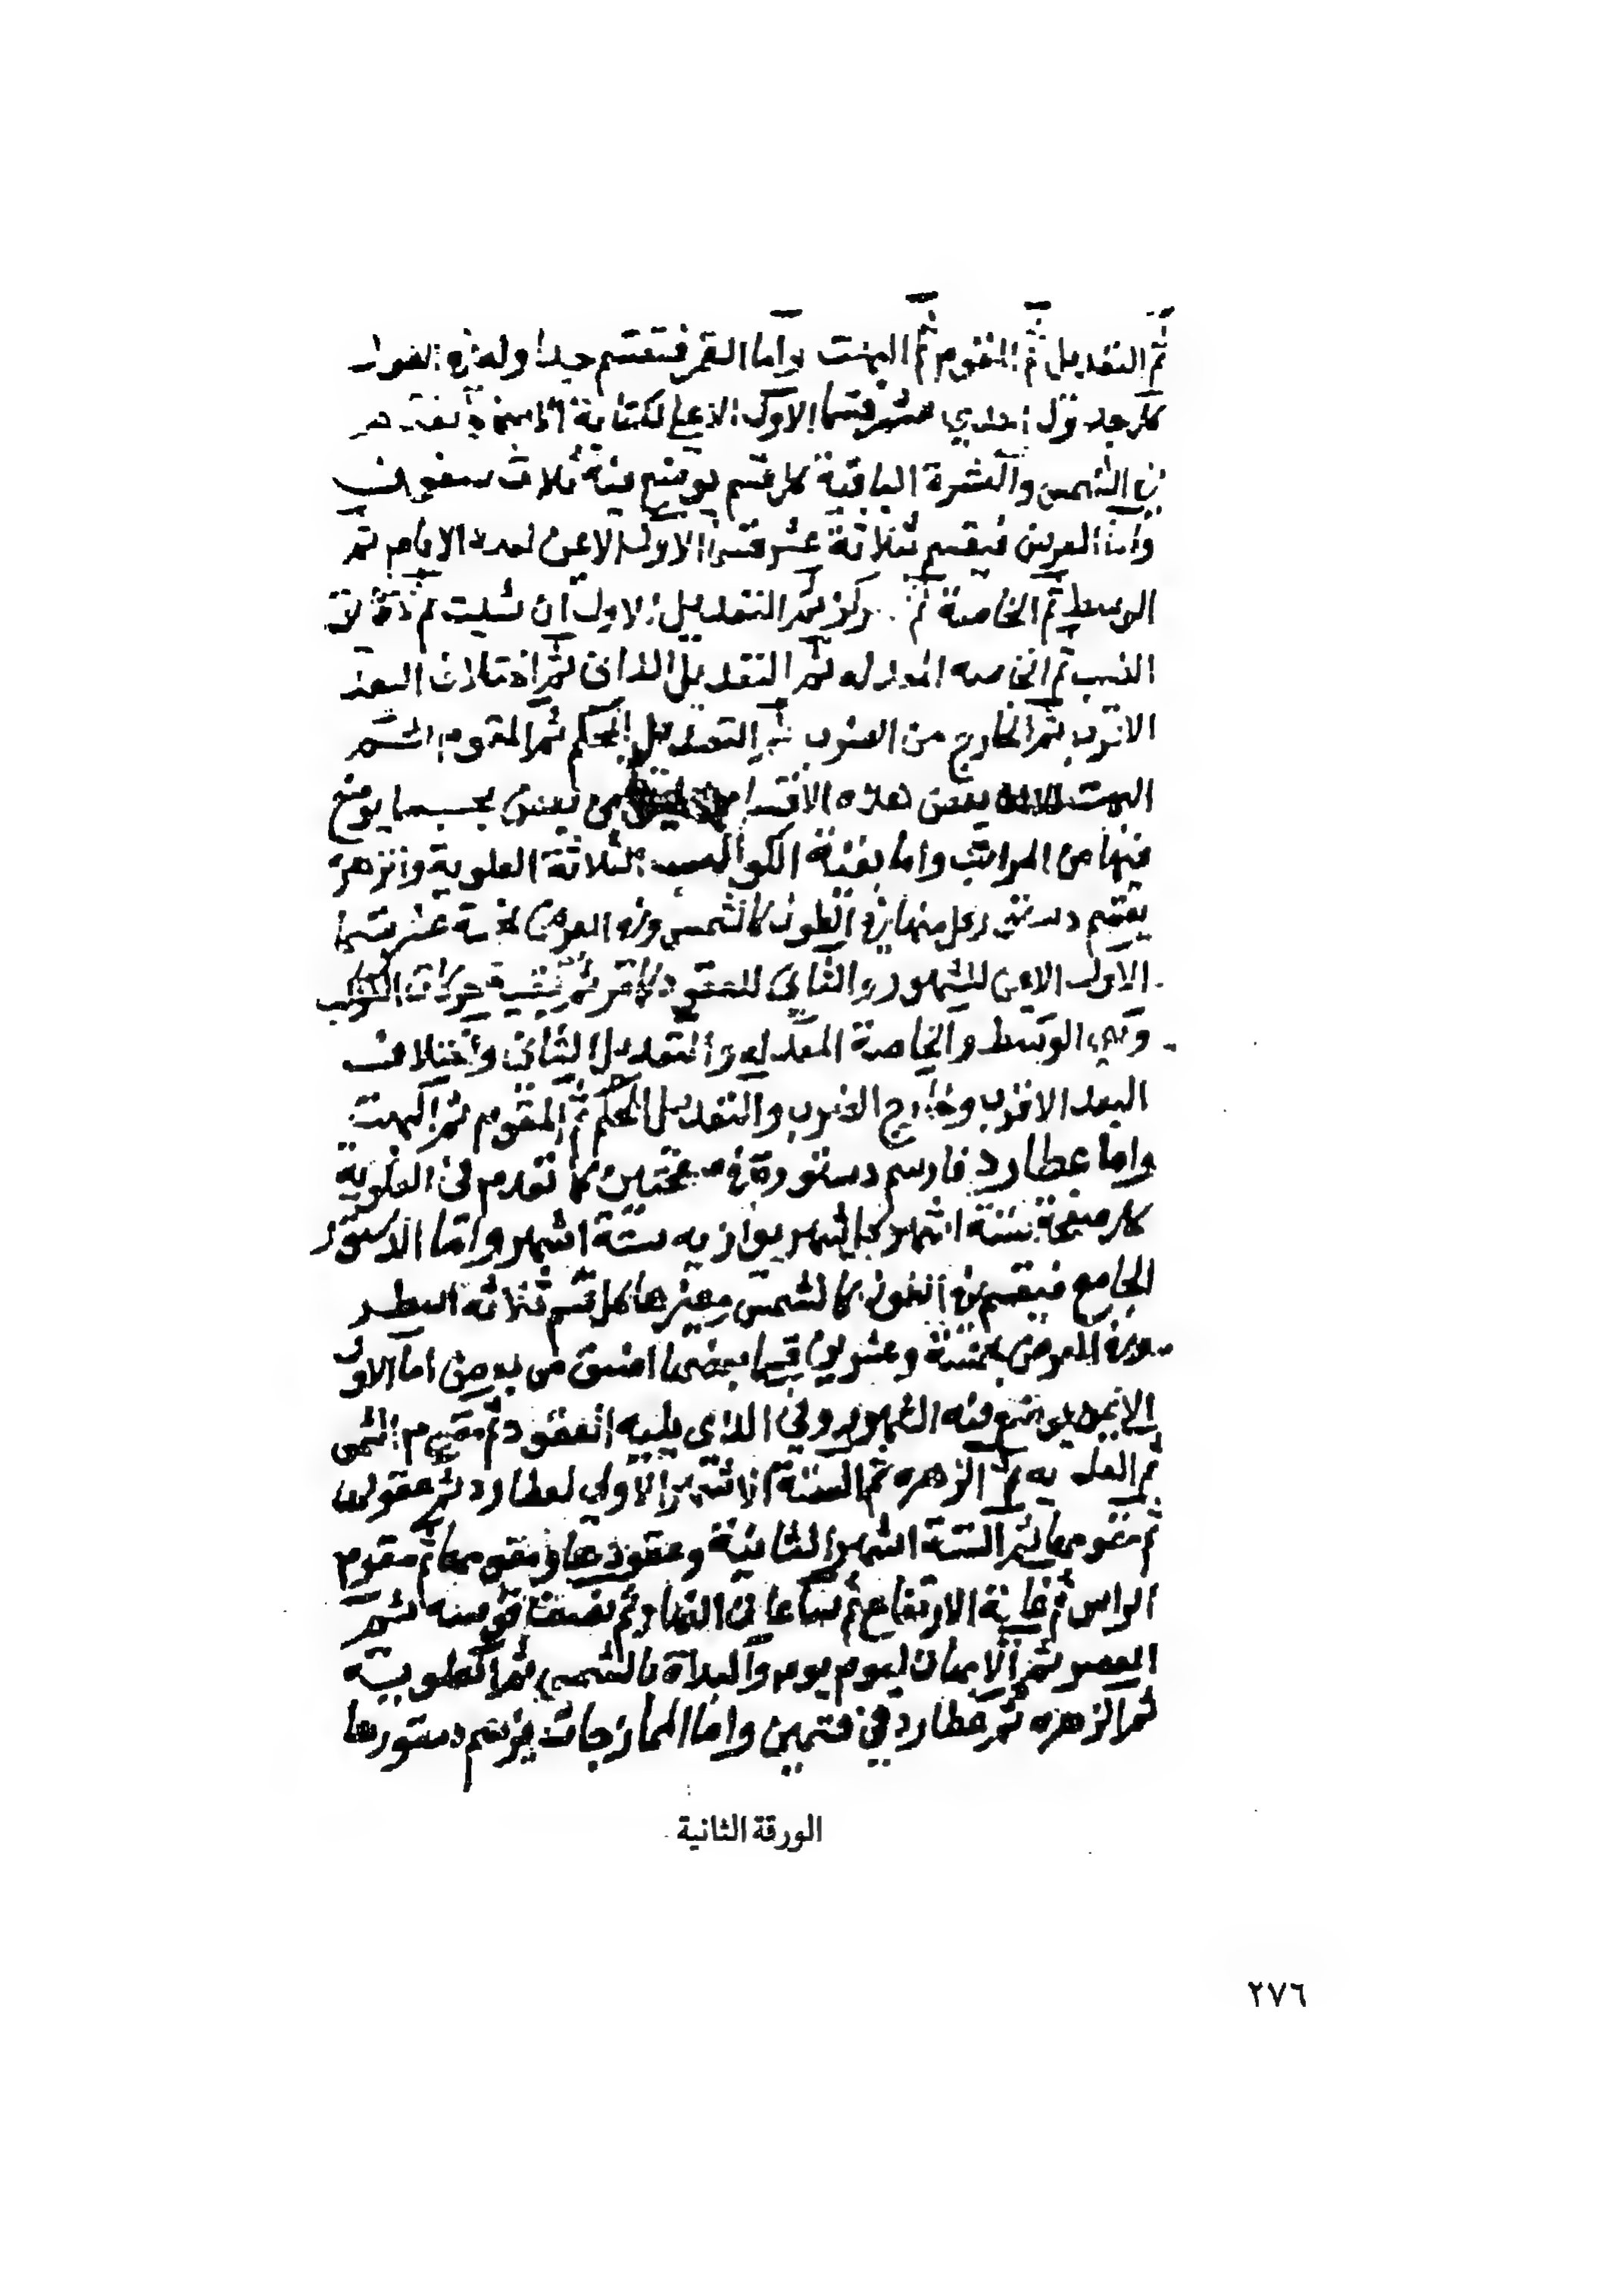 ثم التعديل ثم المقوم ثم البهت واما القمر فتقسم جداوله في الطول
كل جدول احدي عشر قسما الاول الاعلي لكتابة
في الشمس والعشرة الباقية كل قسم يوضع فيه ثلاث
واما العرض فيقسم ثلاثة عشر قسما الاول الاعن لعدد الايام ثم
الوسط ثم الخاصة ثم المركز ثم التعديل الاول ان شئت ثم دقائق
النسب ثم الخاصه المعدله ثم التعديل الثاني ثم اختلاف البعد
الاقرب ثم الخارج من الضرب ثم التعديل المحكم ثم المقوم ثم
البهت بعض هذه الاقسام من بعض بحسب ما يوضع
فيها من المراتب واما بقية الكواكب الثلاثة العلوية والزهرة
يقسم دستور كل منها في الطول كالشمس وفي العرض خمسة عشر قسما
الاول الايمن للشهور والثاني للعقود كالقمر ثم بقية حركات الكواكب
وهي الوسط والخاصة المعدله والتعديل الثاني واختلاف
البعد الاقرب وخارج الضرب والتعديل المحكم ثم المقوم ثم البهت
واما عطارد فارسم دستوره في صفحتين كما تقدم في العلوية
كل صفحة ستة اشهر كل شهر يوازيه ستة اشهر واما الدستور
الجامع فيقسم في الطول كالشمس وغيرها كل قسم ثلاثه اسطر
وفي العرض بخمسة وعشرين قسما بعضها اضيق من بعض اما الاول
الايمن يوضع فيه الشهور وفي الذي يليه العقود ثم مقوم الشمس
ثم العلويه ثم الزهره ثم الستة الاشهر الاولي لعطارد ثم عقودها
ثم مقومها ثم الستة اشهر الثانية وعقودها ومقومها ثم مقوم
الراس ثم غاية الارتفاع ثم ساعات النهار ثم نصف قوسه ثم
العصر ثم الامهات ليوم يوم والبداة بالشمس ثم العلوية
ثم الزهره ثم عطارد في قسمين واما الممازجات فيرسم دستورها
الورقة الثانية
٢٧٦